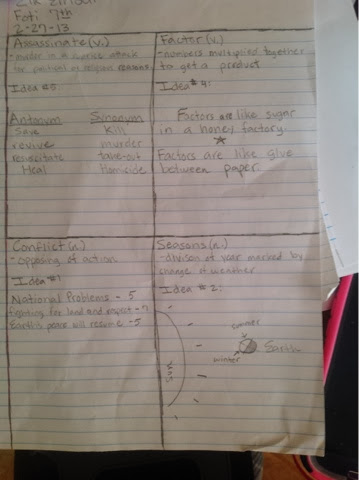 Foti 7th
2-27-13
Assassinate (v.)
- murder in a surprise attack
for political or religious reasons
Idea #5
Antonym Synonym
Save Kill
revive murder
resuscitate take-out
Heal Homicide
Factor (v.)
- numbers multiplied together
to get a product
Idea #4:
Factors are like sugar
in a honey factory.
Factors are like glue
between paper.
Conflict (n.)
- opposing of action
Idea #1
National Problems - 5
fighting for land and respect -
Earth's peace will resume - 5
Seasons (n.)
- divison of year marked by
change of weather
Idea #2:
Sun
summer
Earth
winter